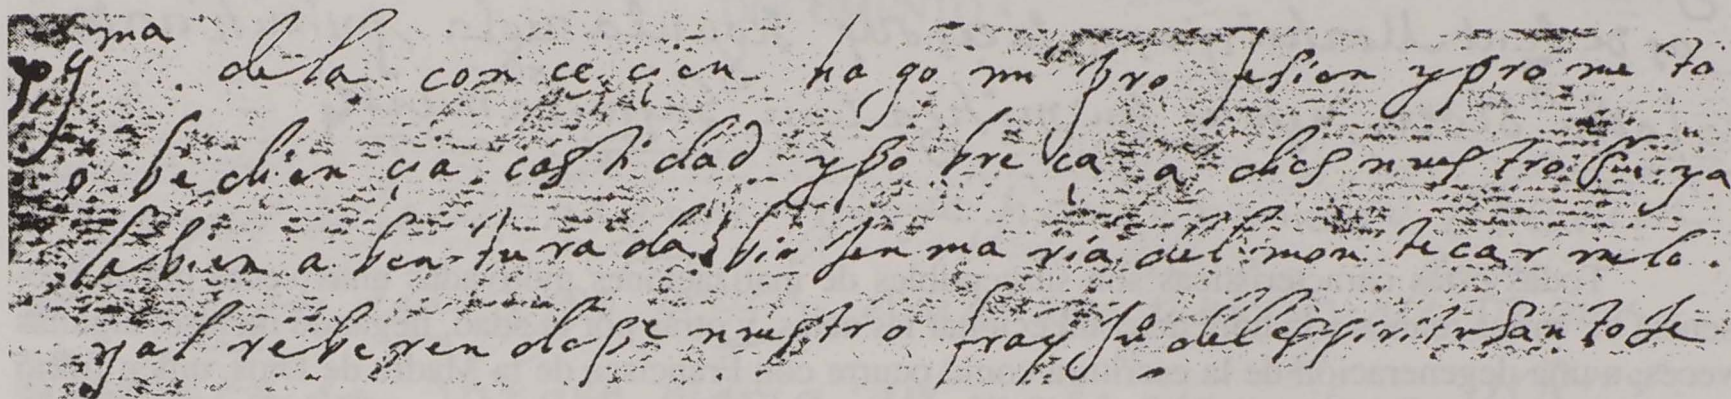 yo ma de la concecien hago mi profesien y prometo
obediencia castidad y pobreça a dios nuestro señor y a
la bien abenturada birjen maria del monte carmelo.
y al reberendo pe nuestro fray ju del espiritu santo je